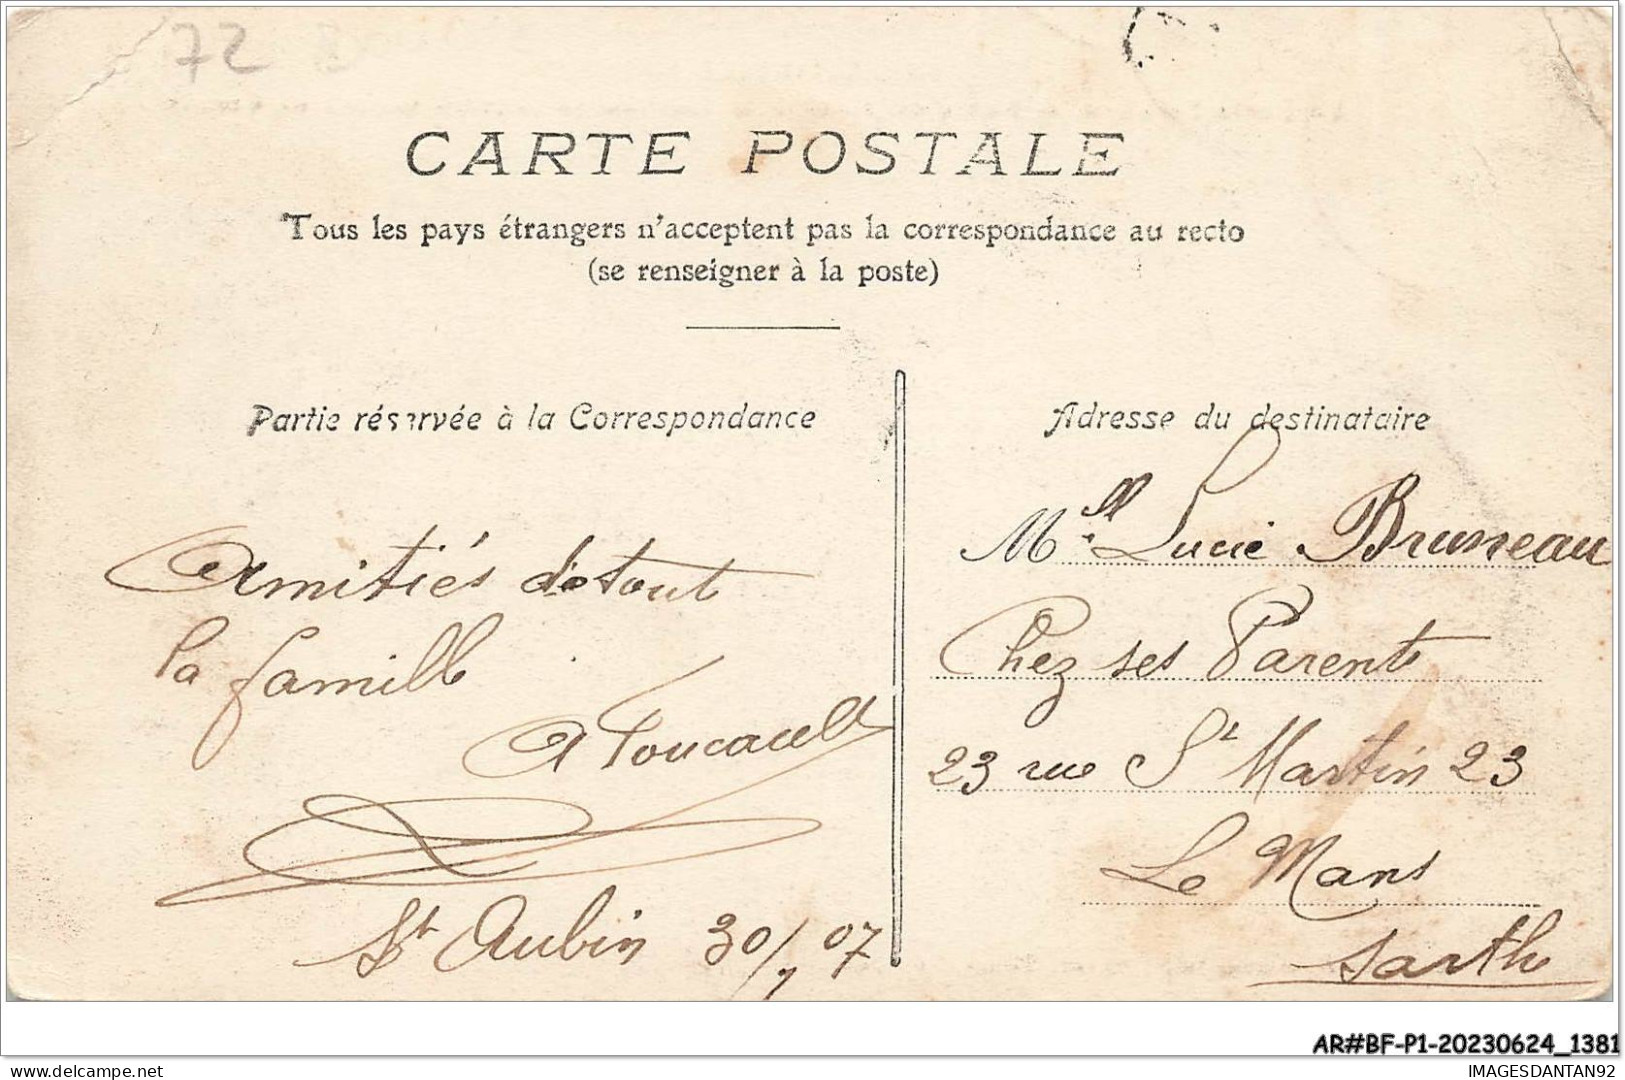 72
CARTE POSTALE
Tous les pays étrangers n'acceptent pas la correspondance au recto
(se renseigner à la poste)
Partie réservée à la Correspondance
Amitiés de tout
la famille
A Foucault
St Aubin 30/7 07
Adresse du destinataire
Mlle Lucie Bruneau
Chez ses Parents
23 rue St Martin 23
Le Mans
Sarthe
AR#BF-P1-20230624_1381
delcampe.net
IMAGESDANTAN92